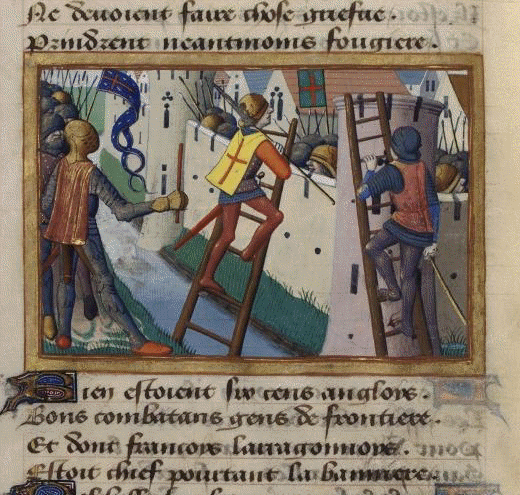 Ne devoient faire chose griefue
Prindrent neantmoins fougiere.
Bien estoient six cens anglois.
Bons combatans gens de frontiere.
Et dont francoys larragonnoys.
Estoit chief pourtant la banniere.